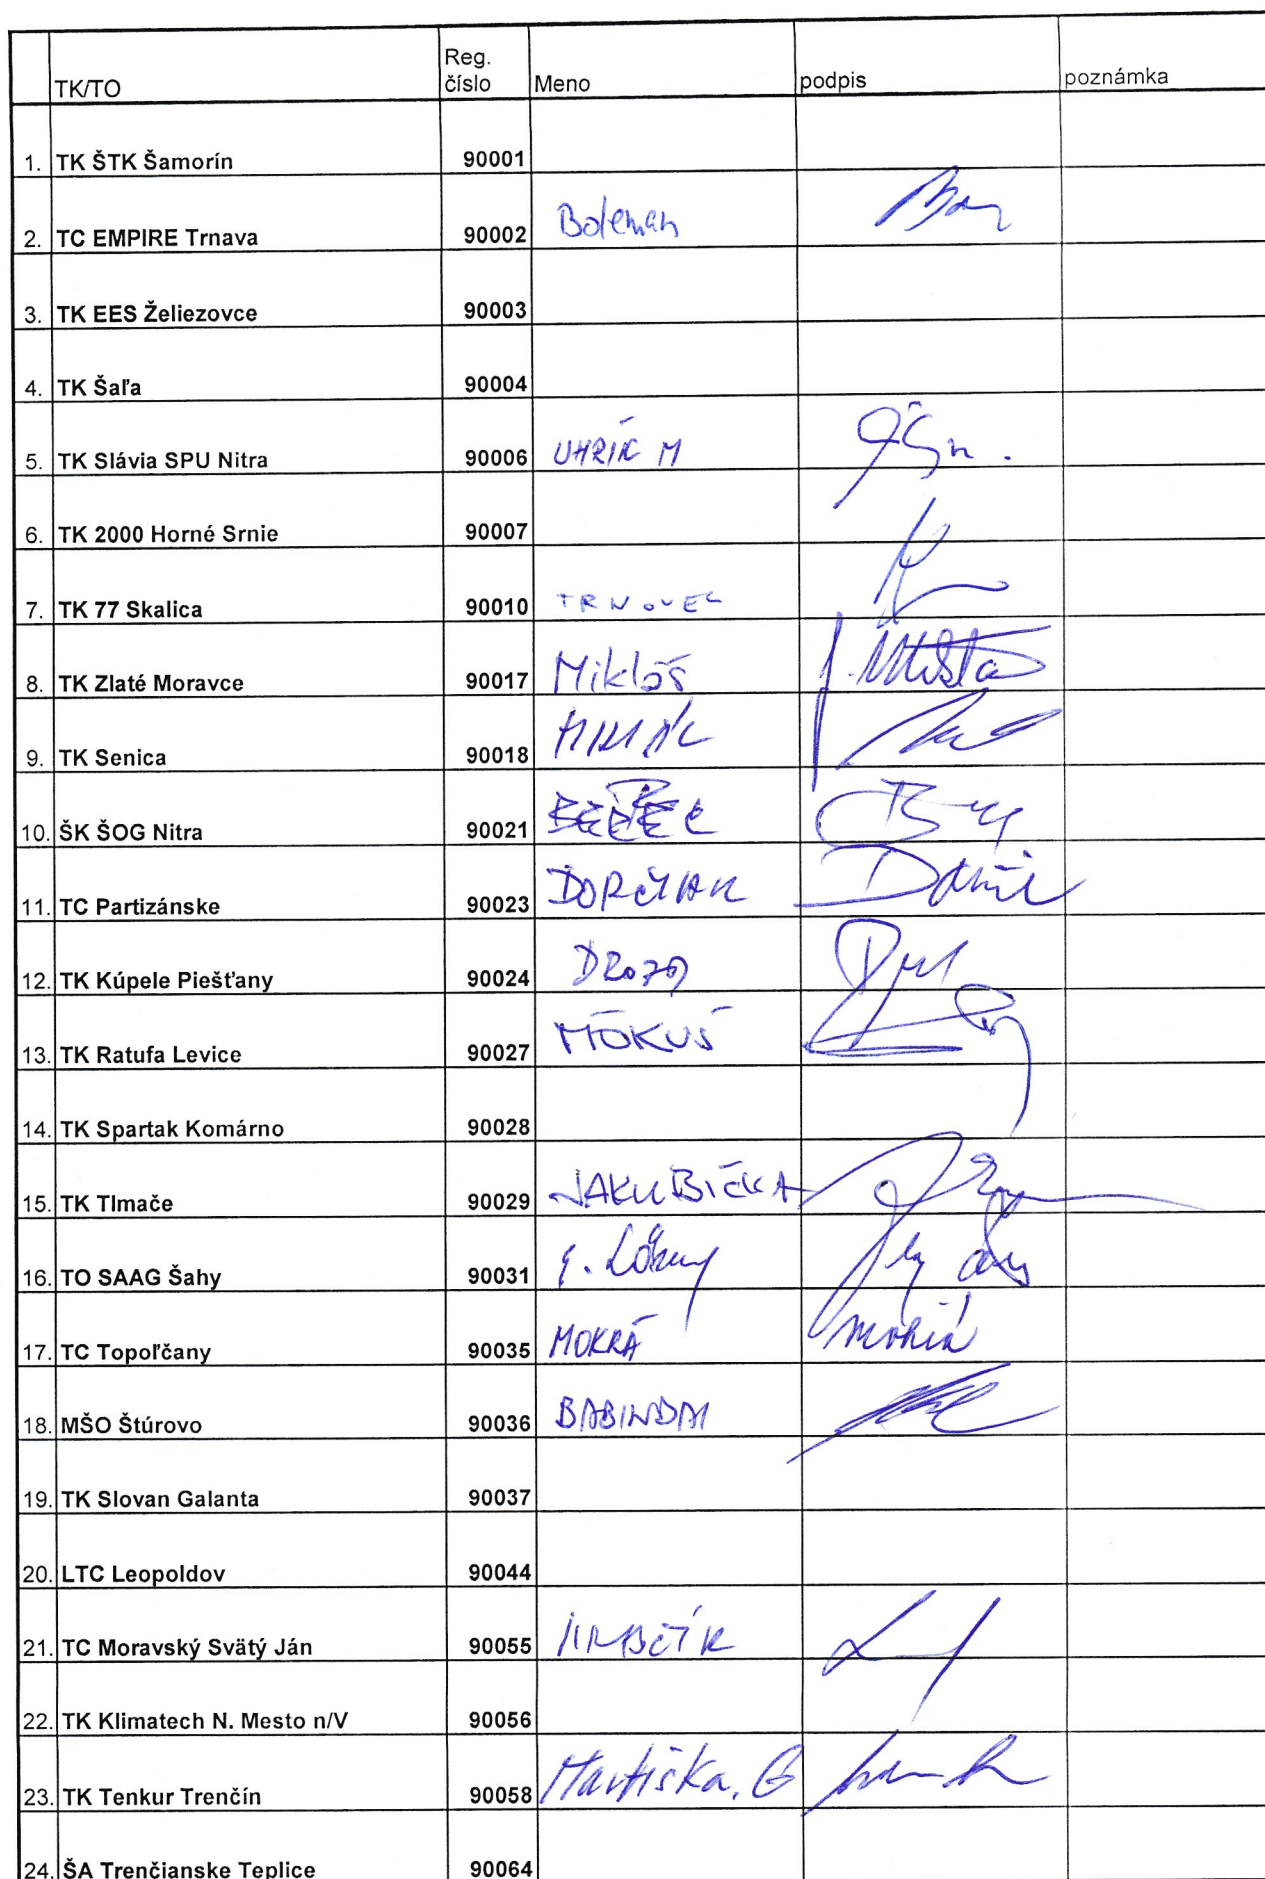 TK/TO Reg. číslo Meno podpis poznámka
1. TK ŠTK Šamorín 90001
2. TC EMPIRE Trnava 90002 Boleman
3. TK EES Želiezovce 90003
4. TK Šaľa 90004
5. TK Slávia SPU Nitra 90006 UHRÍK M
6. TK 2000 Horné Srnie 90007
7. TK 77 Skalica 90010 TRNOVEC
8. TK Zlaté Moravce 90017 Miklóš
9. TK Senica 90018
10. ŠK ŠOG Nitra 90021
11. TC Partizánske 90023 DORČIAK
12. TK Kúpele Piešťany 90024 DROZD
13. TK Ratufa Levice 90027 MÓKUŠ
14. TK Spartak Komárno 90028
15. TK Tlmače 90029 JAKUBIČKA
16. TO SAAG Šahy 90031
17. TC Topoľčany 90035 MOKRÁ Mokrá
18. MŠO Štúrovo 90036 BABINDAI
19. TK Slovan Galanta 90037
20. LTC Leopoldov 90044
21. TC Moravský Svätý Ján 90055
22. TK Klimatech N. Mesto n/V 90056
23. TK Tenkur Trenčín 90058 Martiška. G
24. ŠA Trenčianske Teplice 90064